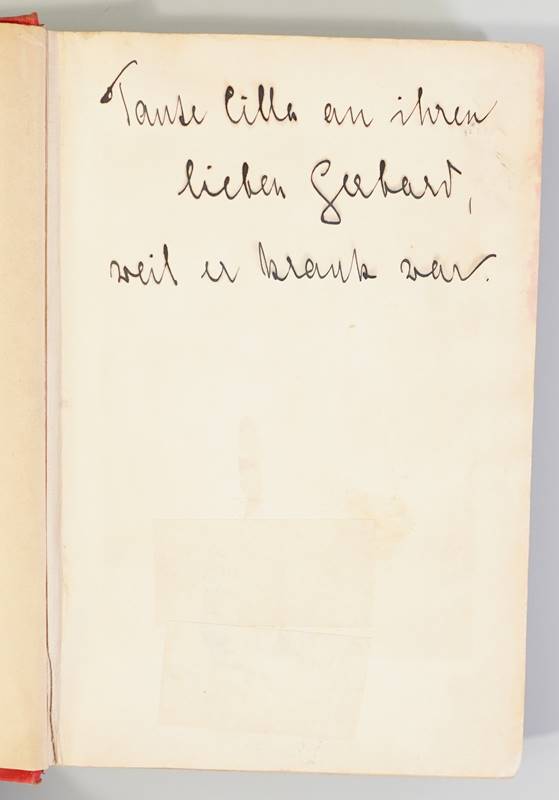 Tante Cilla an ihren
lieben Gerhard,
weil er krank war.